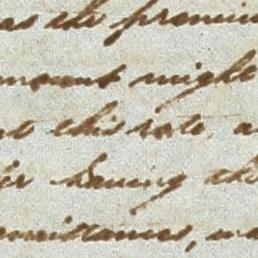 as the premiu
amount might
at this rate, a
his having the
omittances, wa